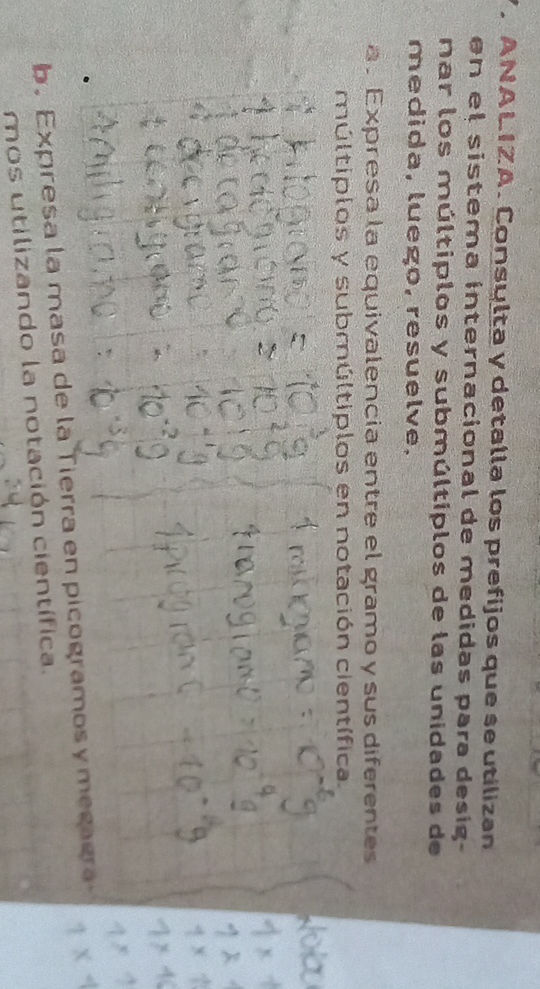 . ANALIZA. Consulta y detalla los prefijos que se utilizan
en el sistema internacional de medidas para desig-
nar los múltiplos y submúltiplos de las unidades de
medida, luego, resuelve.
a. Expresa la equivalencia entre el gramo y sus diferentes
múltiplos y submúltiplos en notación científica.
1 kilogramo = 10³g
1 hectogramo = 10²g
1 decagramo = 10¹g
1 decigramo = 10⁻¹g
1 centigramo = 10⁻²g
1 miligramo = 10⁻³g
1 microgramo = 10⁻⁶g
1 nanogramo = 10⁻⁹g
1 picogramo = 10
b. Expresa la masa de la Tierra en picogramos y megagra-
mos utilizando la notación científica.